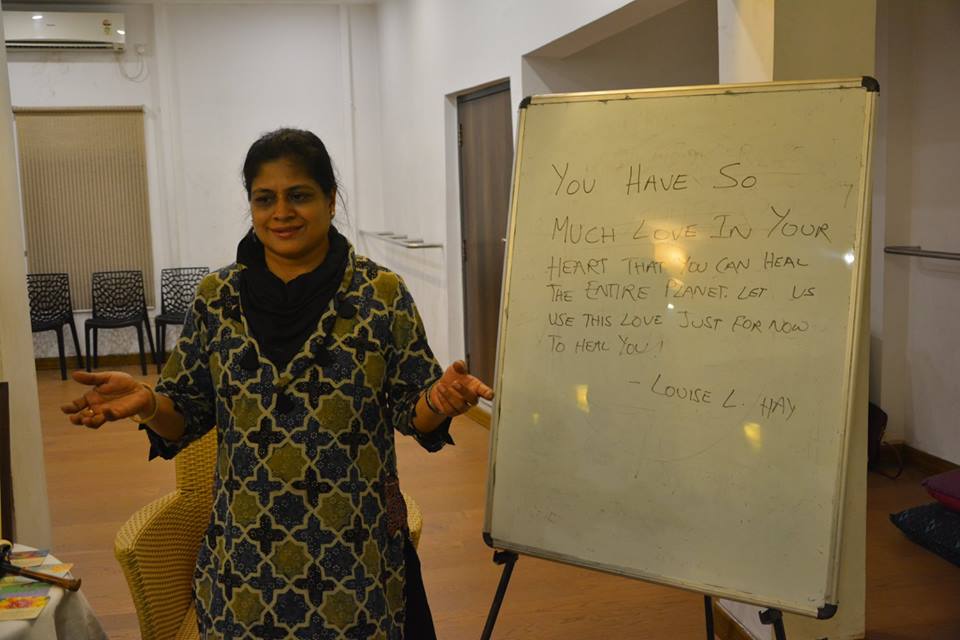 You Have So
Much Love In Your
Heart That You Can Heal
The Entire Planet. Let Us
Use This Love Just For Now
To Heal You!
- Louise L. Hay